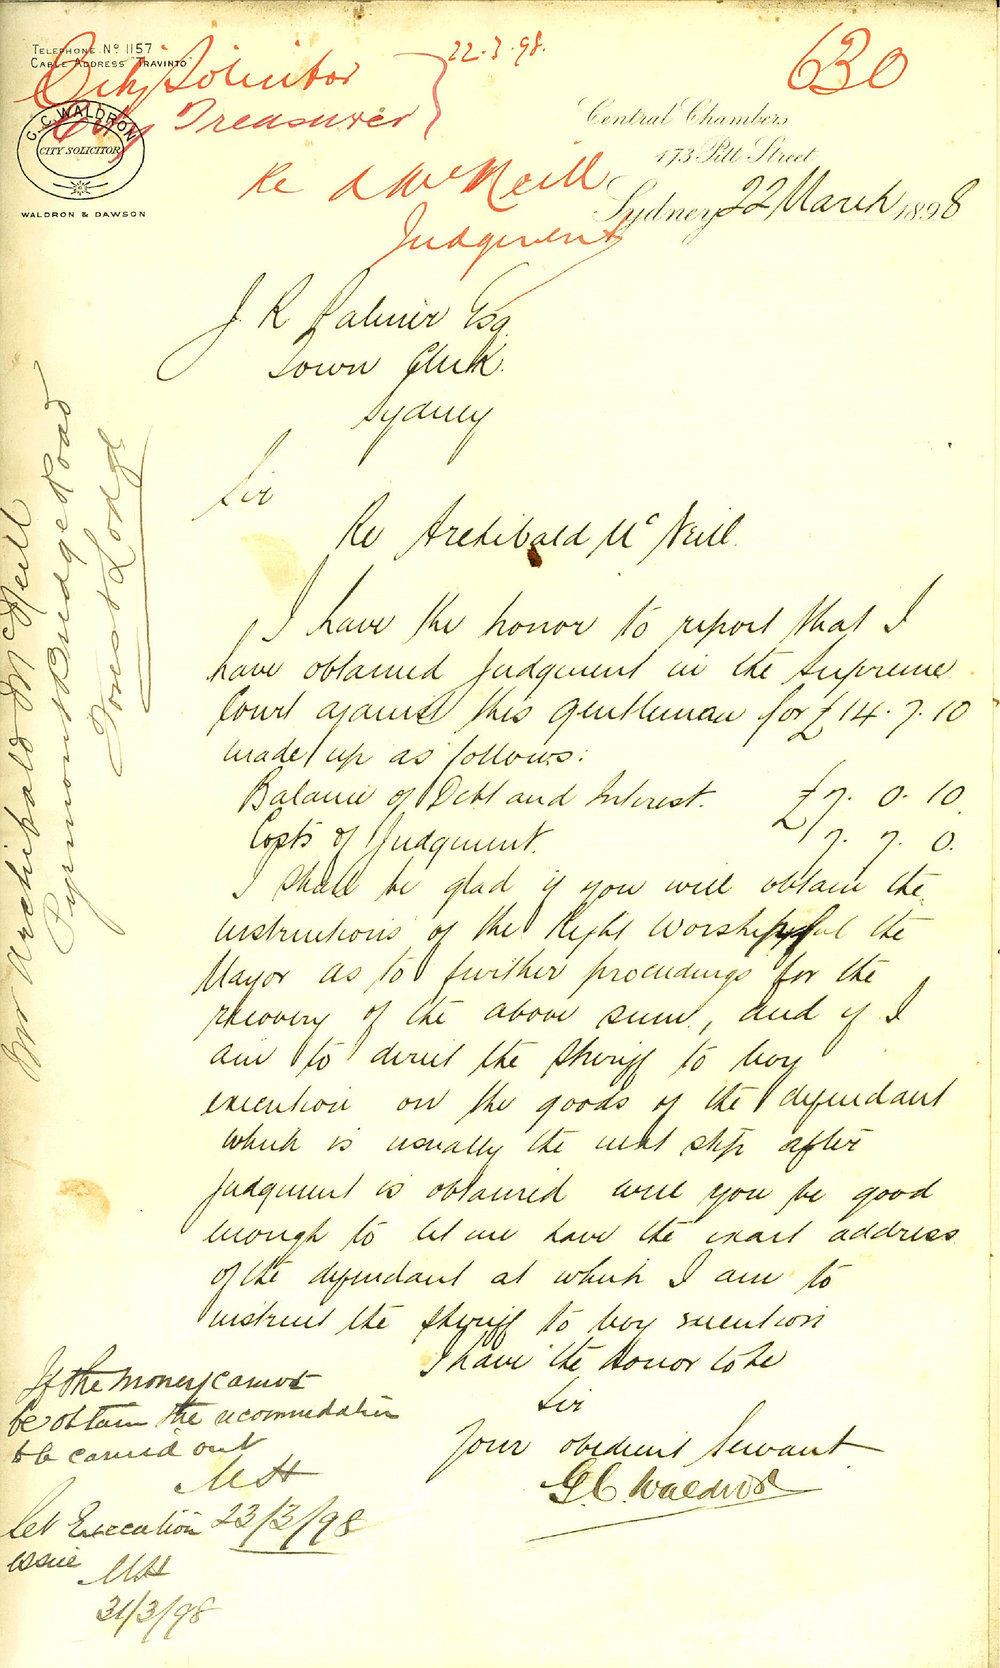 Telephone No 1157
Cable Address "Travinto"
City Solicitor
City Treasurer
22.3.98.
630
G.C. WALDRON
CITY SOLICITOR
WALDRON & DAWSON
Central Chambers
173 Pitt Street
Sydney 22 March 1898
Re A McNeill
Judgment
J R Palmer Esq.
Town Clerk.
Sydney
Sir
Re Archibald McNeill.
I have the honor to report that I
have obtained Judgment in the Supreme
Court against this gentleman for £14.7.10
made up as follows:
Balance of Debt and Interest. £7. 0. 10
Costs of Judgment. 7. 7. 0.
I shall be glad if you will obtain the
instructions of the Right Worshipful the
Mayor as to further proceedings for the
recovery of the above sum, and if I
am to direct the Sheriff to levy
execution on the goods of the defendant
which is usually the next step after
judgment is obtained will you be good
enough to let me have the exact address
of the defendant at which I am to
instruct the Sheriff to levy execution
I have the honor to be
Sir
Your obedient Servant
G.C. Waldron
Mr Archibald McNeill
Pyrmont Bridge Road
Forest Lodge
If the money cannot
be obtain the recommendation
to be carried out
MH
23/3/98
Let Execution
issue
MH
31/3/98